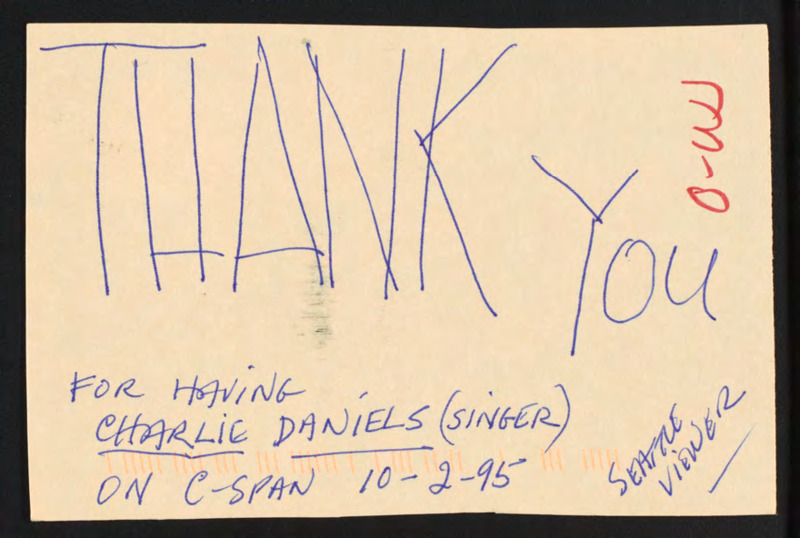 THANK
YOU
FOR HAVING
CHARLIE DANIELS (SINGER)
ON C-SPAN 10-2-95
SEATTLE
VIEWER